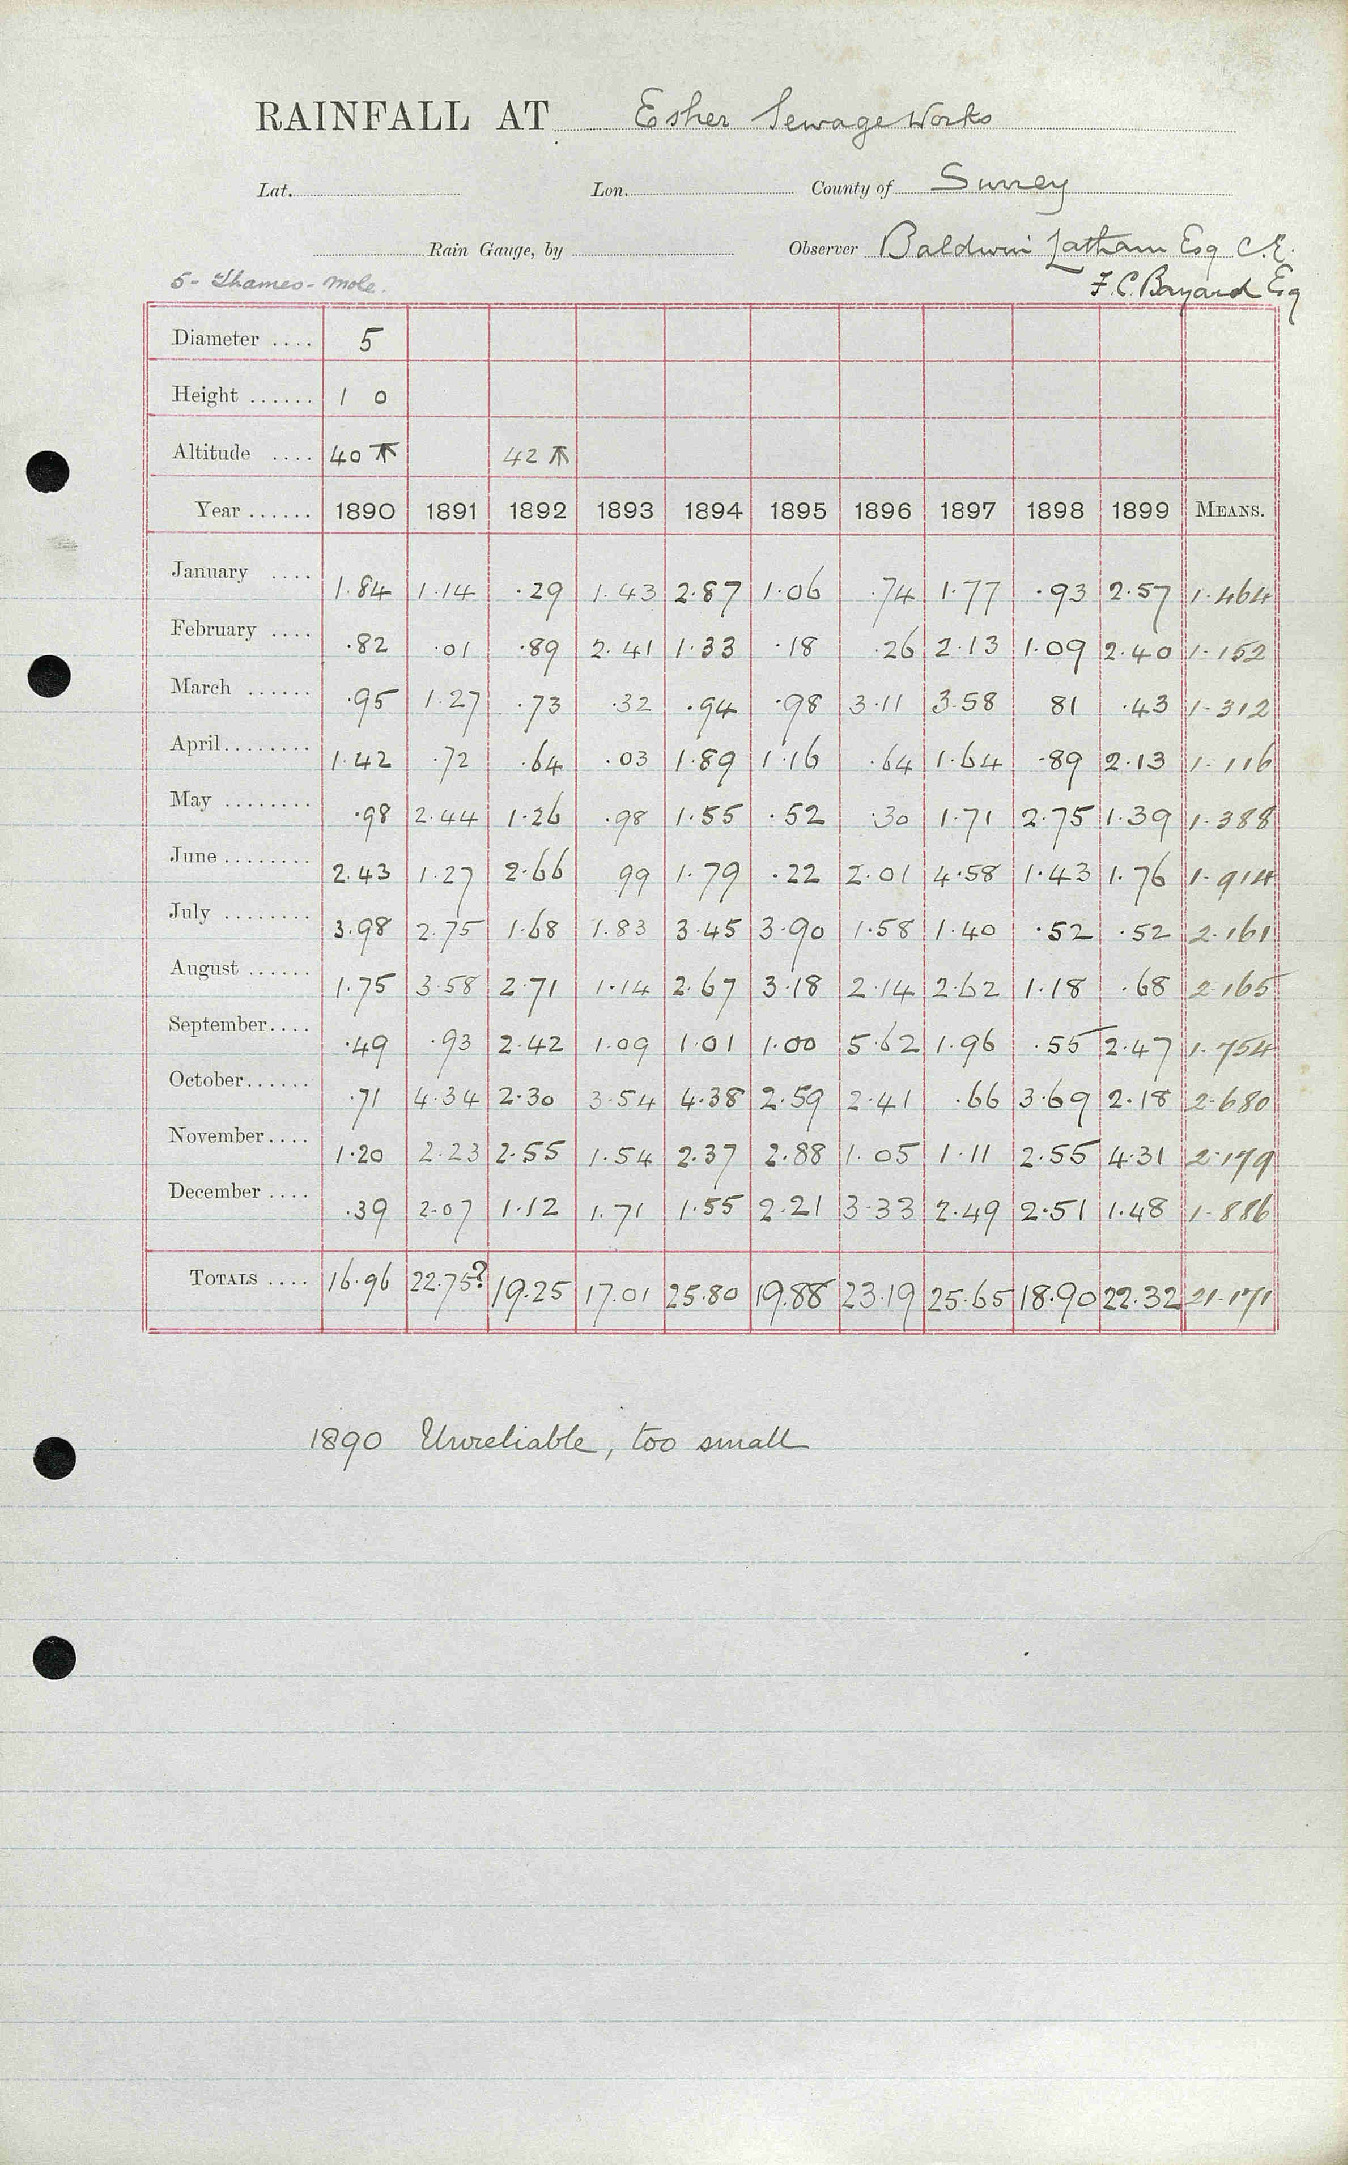 RAINFALL AT Esher Sewage Works
Lat. Lon. County of Surrey
Rain Gauge, by Observer Baldwin Latham Esq C.E.
5 - Thames - Mole. F. C. Bayard Esq
Diameter .... 5
Height ...... 1 0
Altitude .... 40 42
Year ...... 1890 1891 1892 1893 1894 1895 1896 1897 1898 1899 MEANS.
January .... 1.84 1.14 .29 1.43 2.87 1.06 .74 1.77 .93 2.57 1.464
February .... .82 .01 .89 2.41 1.33 .18 .26 2.13 1.09 2.40 1.152
March ...... .95 1.27 .73 .32 .94 .98 3.11 3.58 81 .43 1.312
April........ 1.42 .72 .64 .03 1.89 1.16 .64 1.64 .89 2.13 1.116
May ........ .98 2.44 1.26 .98 1.55 .52 .30 1.71 2.75 1.39 1.388
June ........ 2.43 1.27 2.66 99 1.79 .22 2.01 4.58 1.43 1.76 1.914
July ........ 3.98 2.75 1.68 1.83 3.45 3.90 1.58 1.40 .52 .52 2.161
August ...... 1.75 3.58 2.71 1.14 2.67 3.18 2.14 2.62 1.18 .68 2.165
September.... .49 .93 2.42 1.09 1.01 1.00 5.62 1.96 .55 2.47 1.754
October...... .71 4.34 2.30 3.54 4.38 2.59 2.41 .66 3.69 2.18 2.680
November.... 1.20 2.23 2.55 1.54 2.37 2.88 1.05 1.11 2.55 4.31 2.179
December .... .39 2.07 1.12 1.71 1.55 2.21 3.33 2.49 2.51 1.48 1.886
TOTALS .... 16.96 22.75? 19.25 17.01 25.80 19.88 23.19 25.65 18.90 22.32 21.171
1890 Unreliable, too small